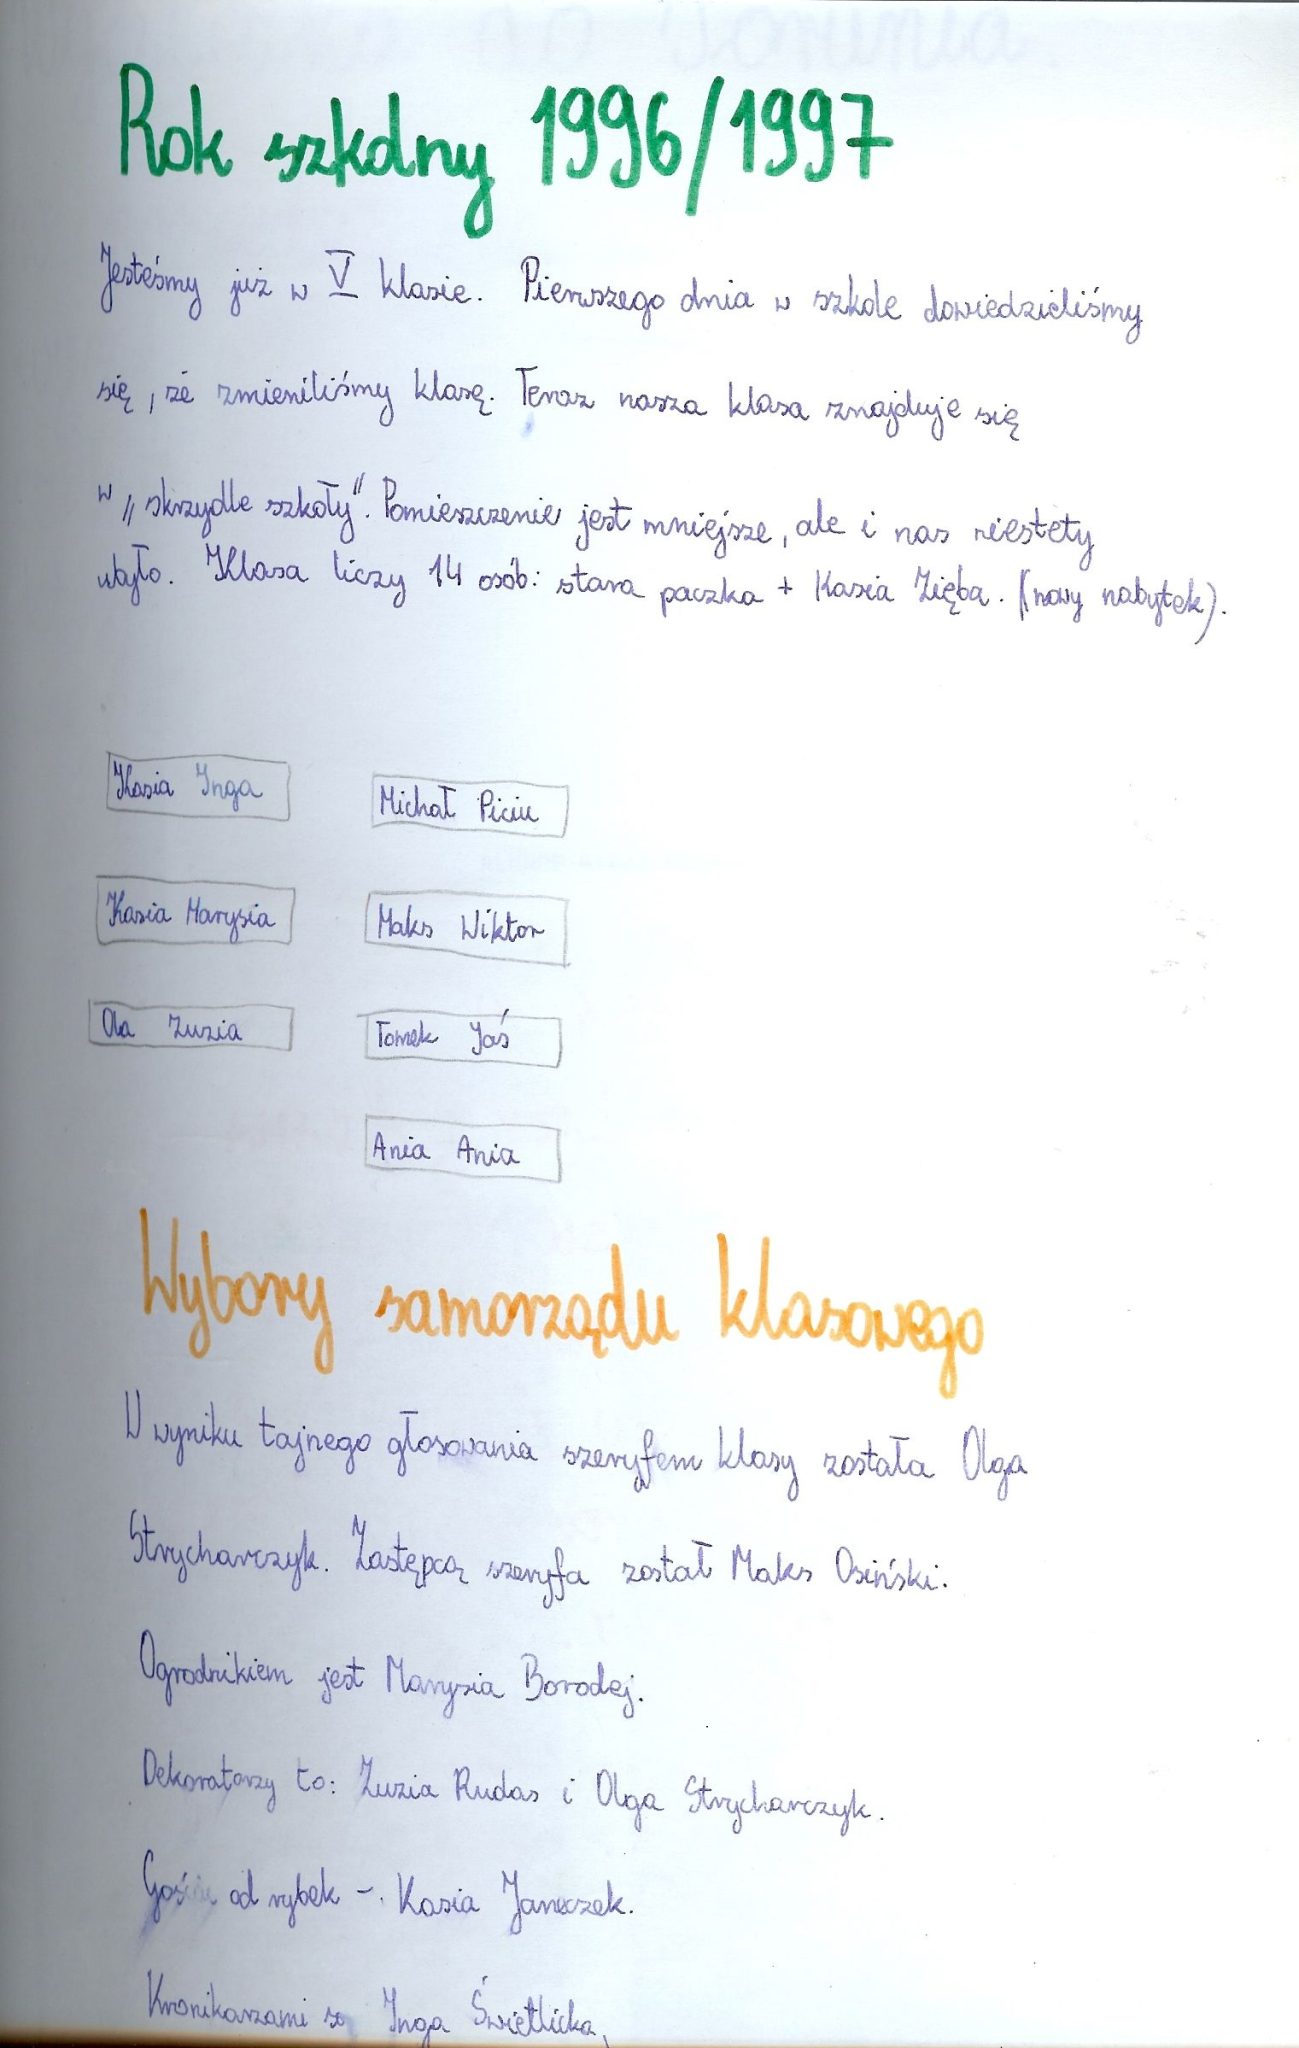 Rok szkolny 1996/1997
Jesteśmy już w V klasie. Pierwszego dnia w szkole dowiedzieliśmy
się, że zmieniliśmy klasę. Teraz nasza klasa znajduje się
w „skrzydle szkoły". Pomieszczenie jest mniejsze, ale i nas niestety
ubyło. Klasa liczy 14 osób: stara paczka + Kasia Zięba. (nowy nabytek).
Kasia Inga
Michał Piciu
Kasia Marysia
Maks Wiktor
Ola Zuzia
Tomek Jaś
Ania Ania
Wybory samorządu klasowego
W wyniku tajnego głosowania szeryfem klasy została Olga
Strycharczyk. Zastępcą szeryfa został Maks Osiński.
Ogrodnikiem jest Marysia Borodej.
Dekoratorzy to: Zuzia Rudas i Olga Strycharczyk.
Gościu od rybek - Kasia Janeczek.
Kronikarzami są Inga Świetlicka,